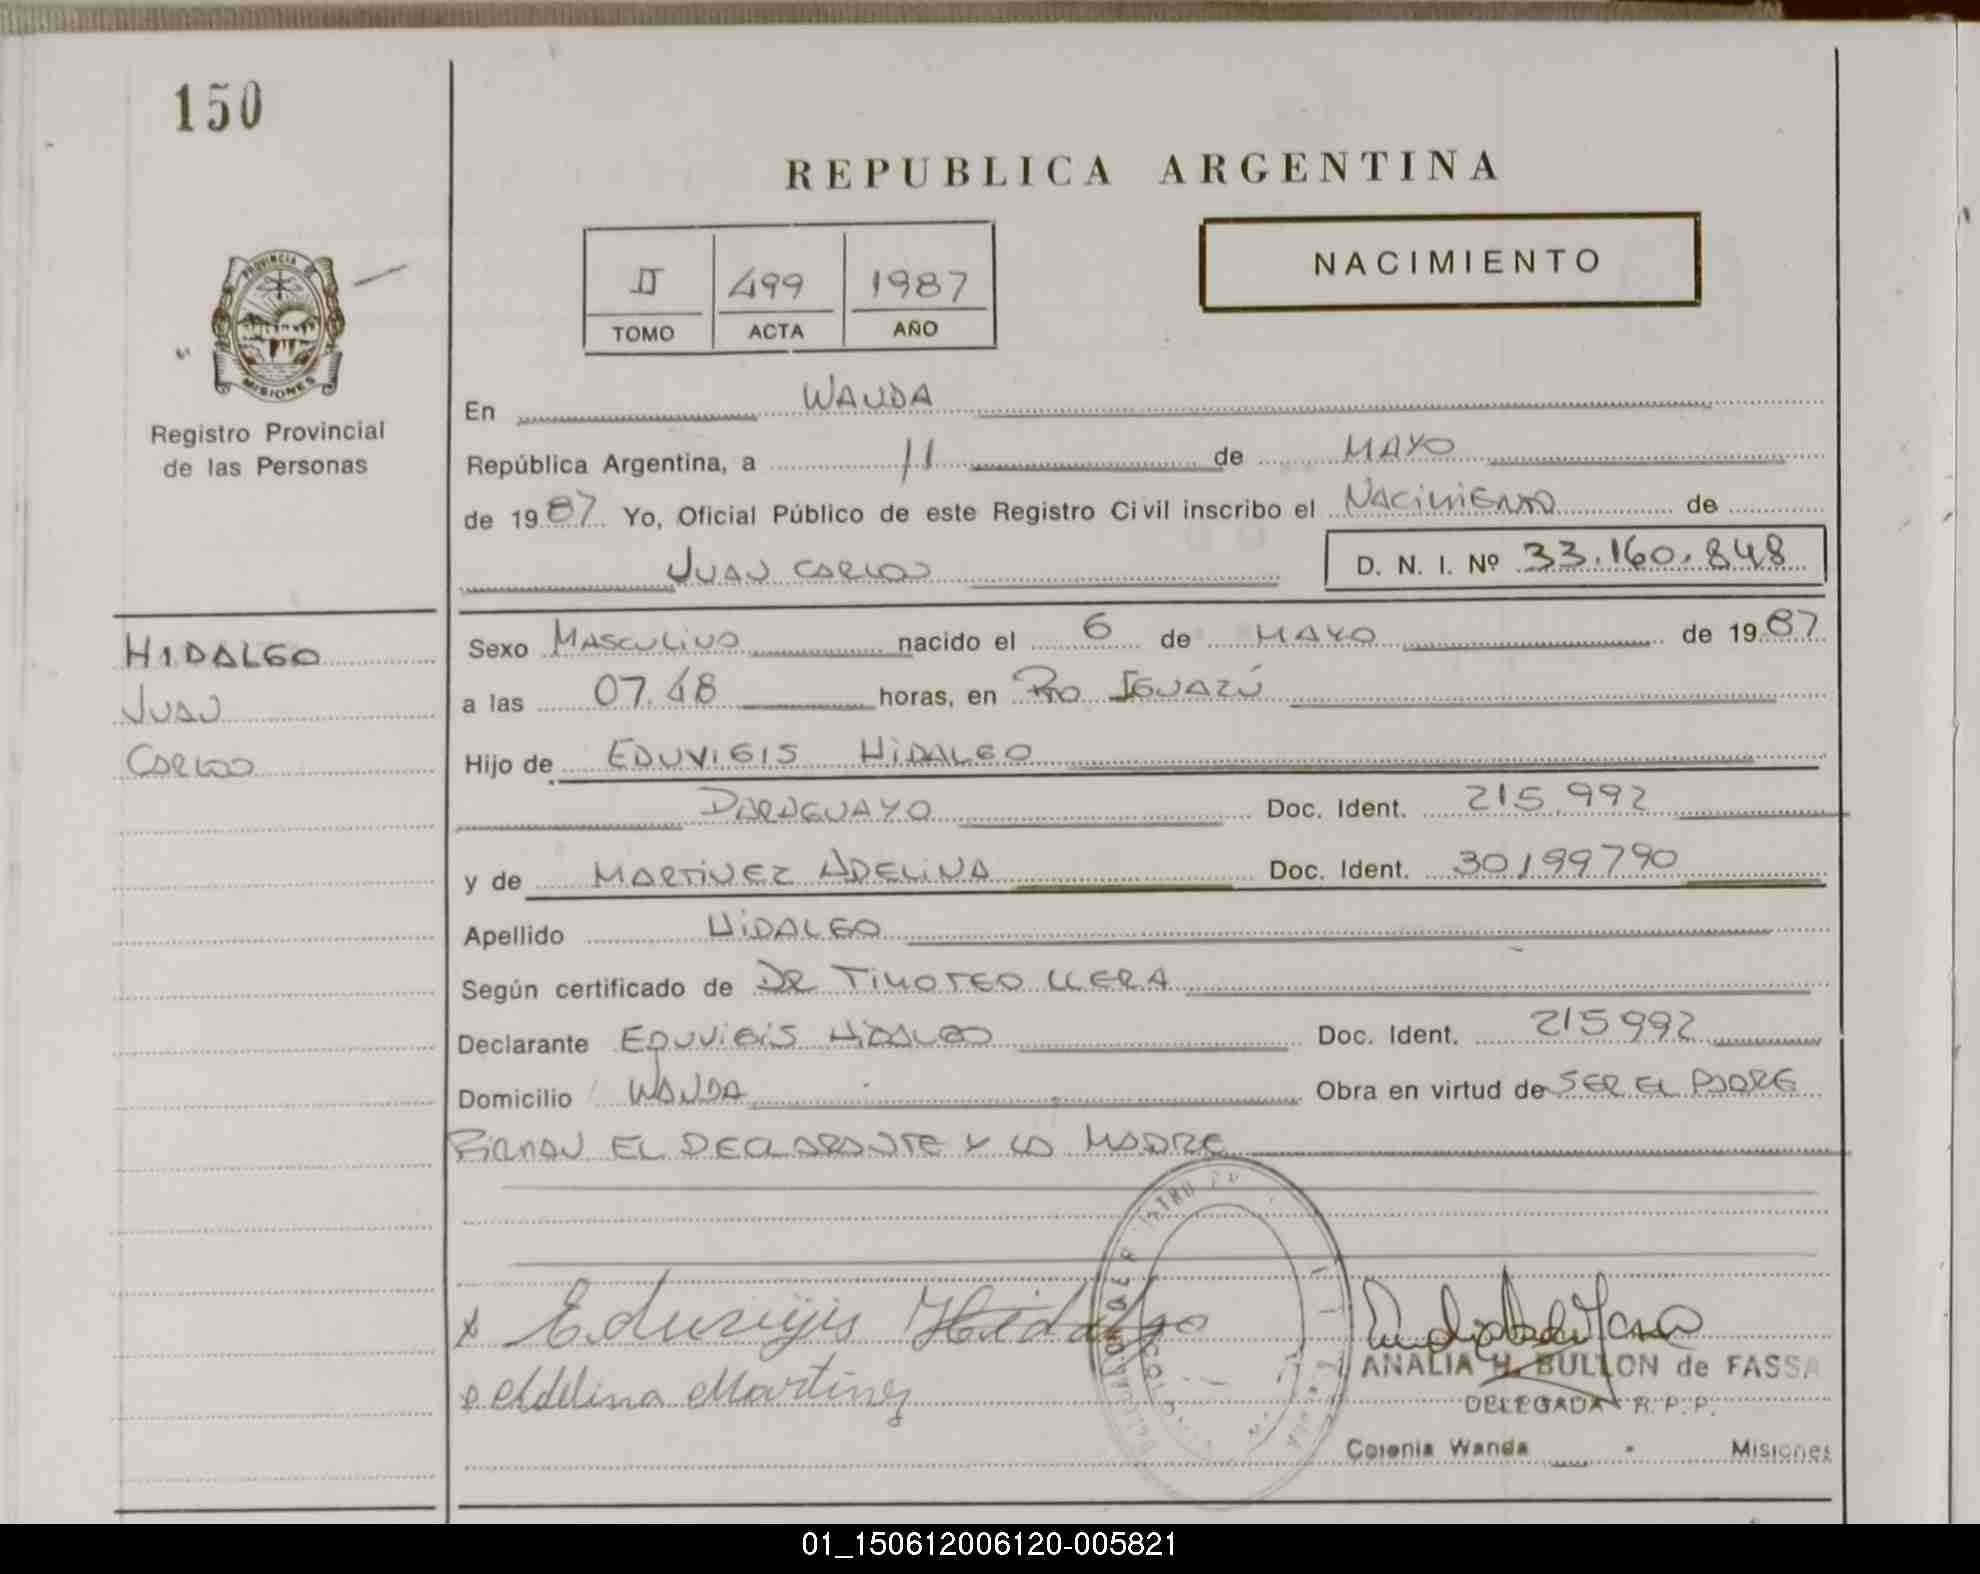 150
REPUBLICA ARGENTINA
PROVINCIA DE
MISIONES
Registro Provincial
de las Personas
II 499 1987
TOMO ACTA AÑO
NACIMIENTO
En WANDA
República Argentina, a 11 de MAYO
de 1987 Yo, Oficial Público de este Registro Civil inscribo el NACIMIENTO de
JUAN CARLOS D. N. I. Nº 33.160.848
HIDALGO
JUAN
CARLOS
Sexo MASCULINO nacido el 6 de MAYO de 1987
a las 07.48 horas, en Pto IGUAZÚ
Hijo de EDUVIGIS HIDALGO
PARAGUAYO Doc. Ident. 215.992
y de MARTINEZ ADELINA Doc. Ident. 30199790
Apellido HIDALGO
Según certificado de DR TIMOTEO LLERA
Declarante EDUVIGIS HIDALGO Doc. Ident. 215992
Domicilio WANDA Obra en virtud de SER EL PADRE
FIRMAN EL DECLARANTE Y LA MADRE
x Eduvigis Hidalgo
Adelina Martinez
ANALIA H. BULLON de FASSA
DELEGADA R. P. P.
Colonia Wanda - Misiones
01_150612006120-005821